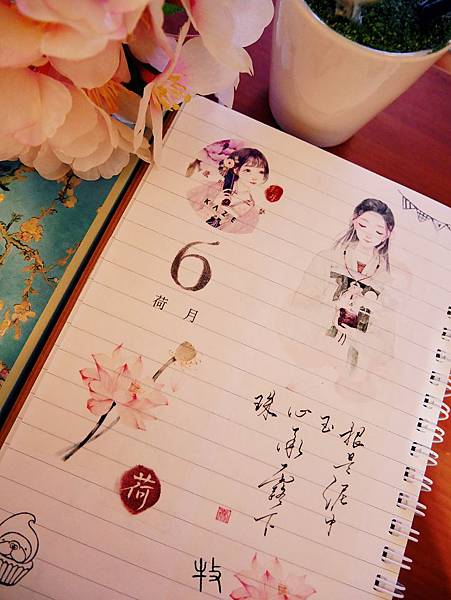 KAZE
6
荷月
根是泥中
玉
心承露下
珠
荷